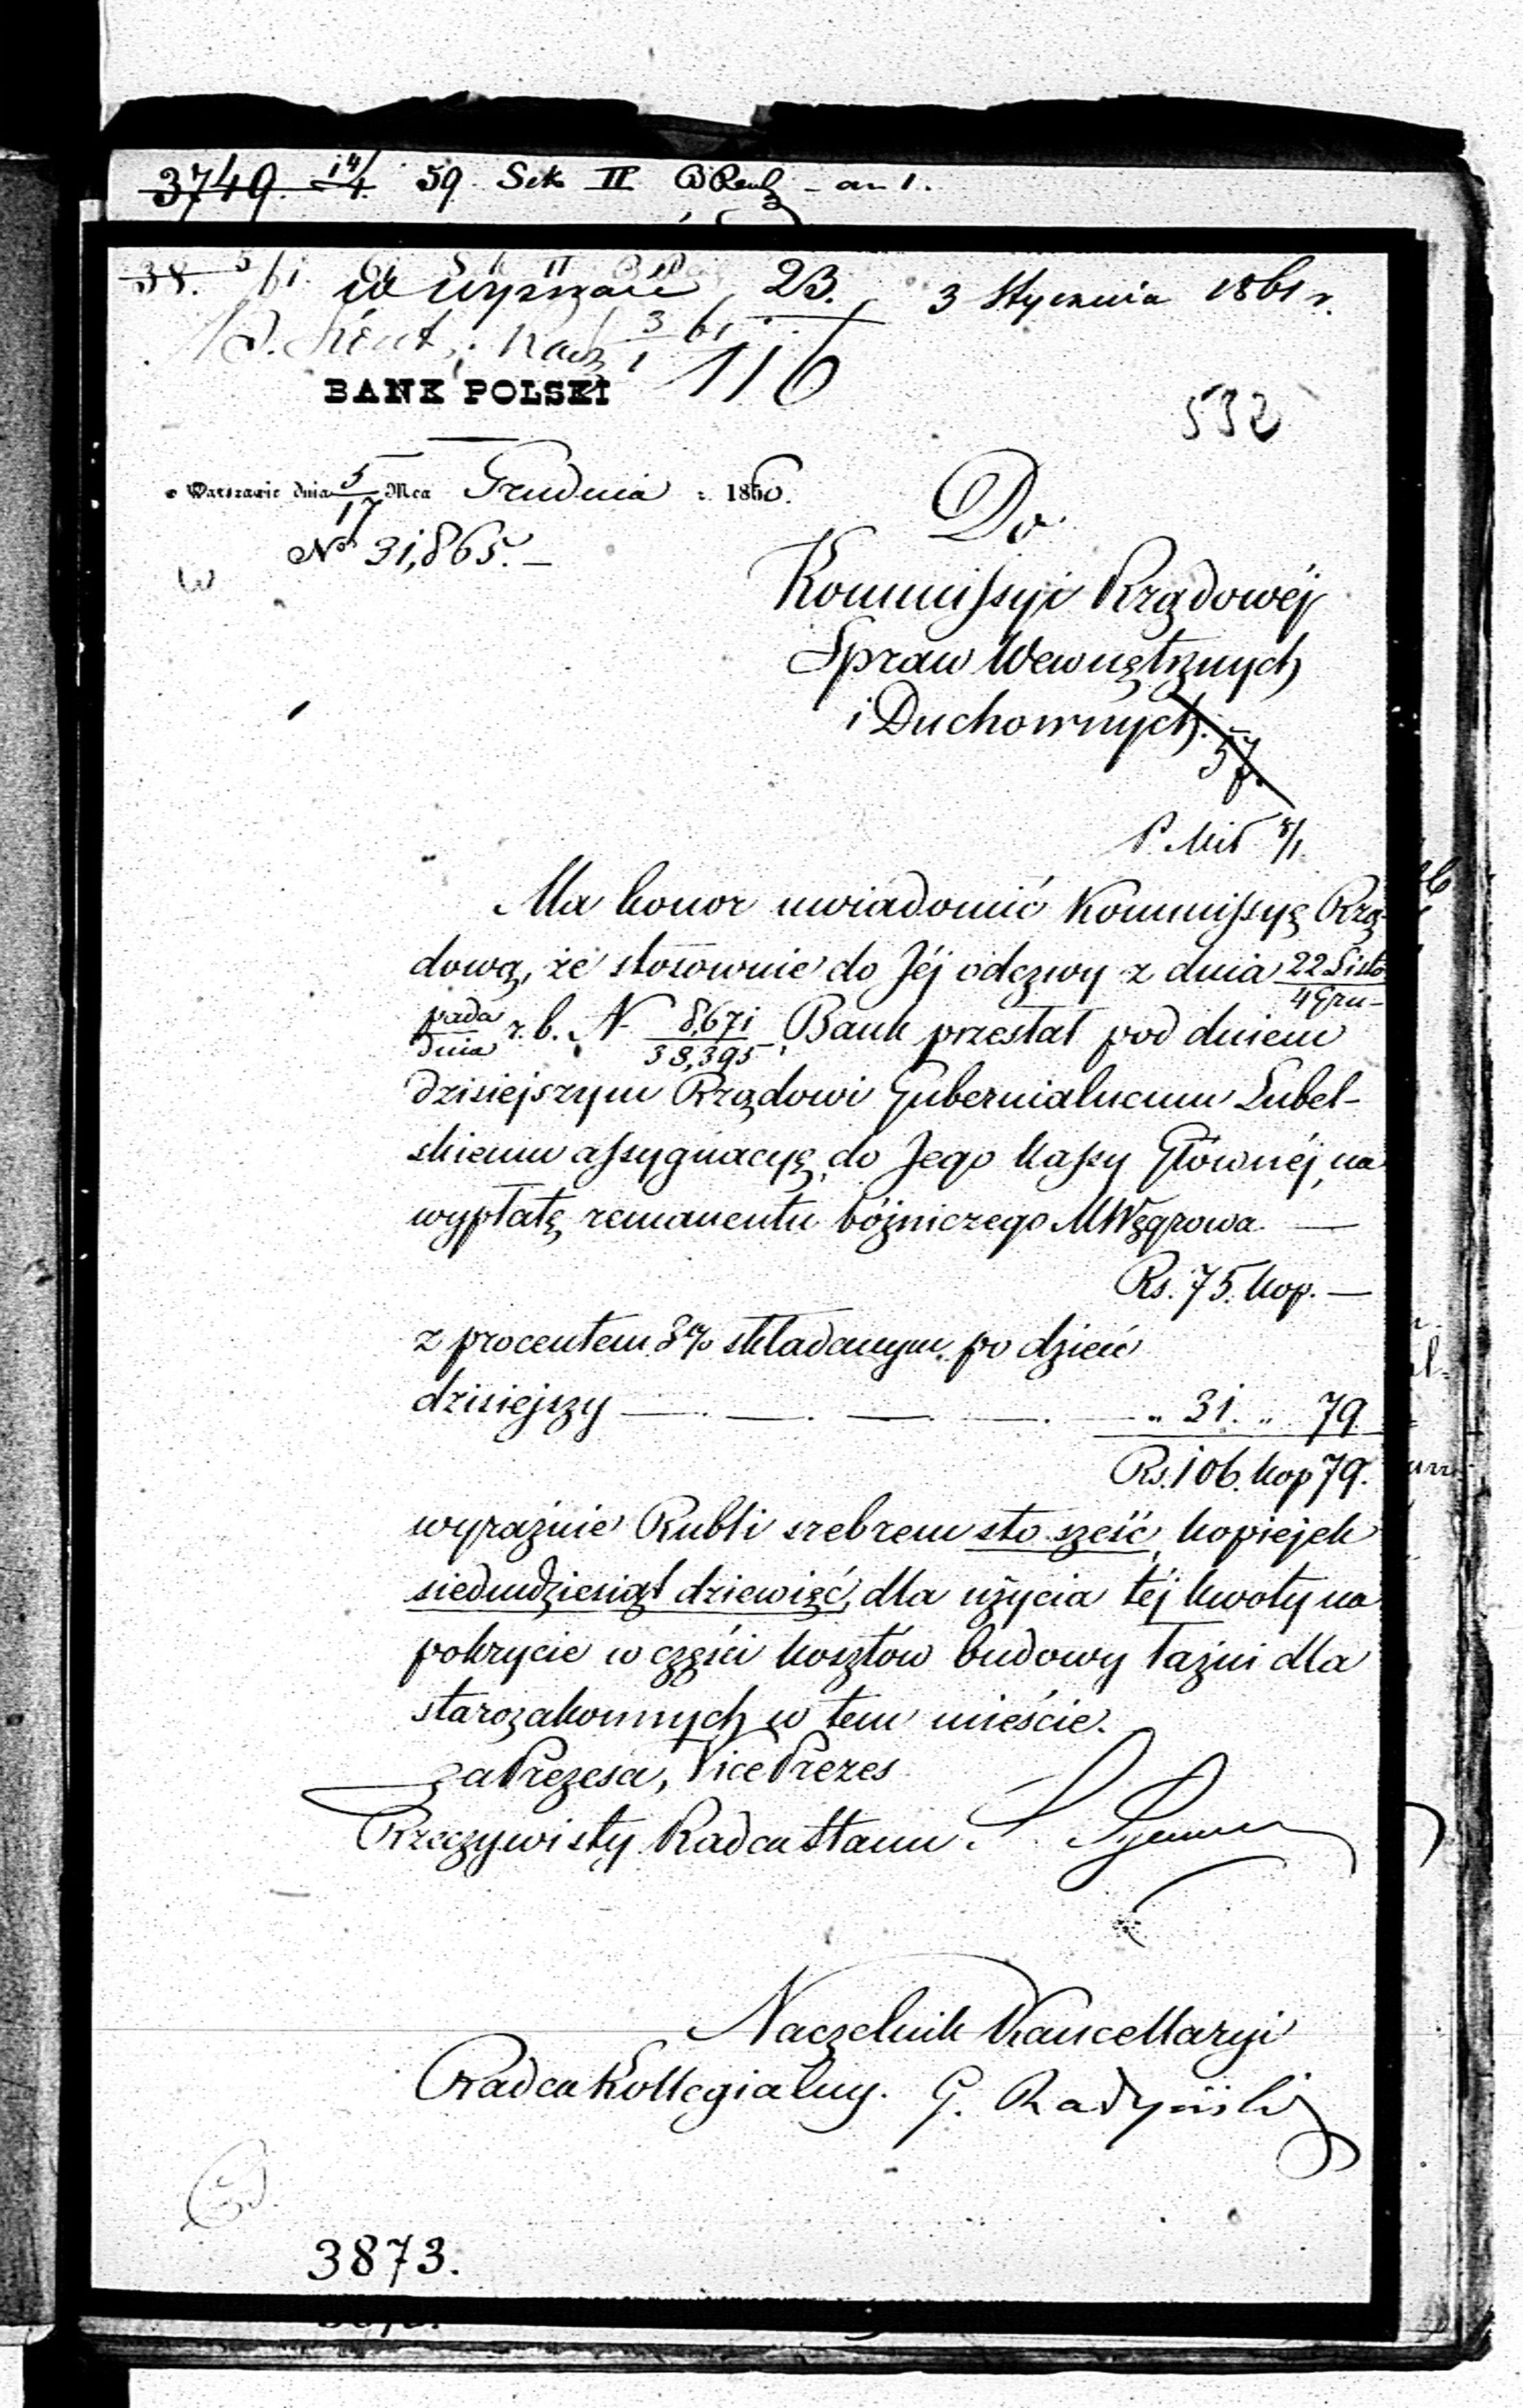 3749. 14/4. 59. Sek II
38. 5/61.
23. 3 Stycznia 1861 r.
3/1 61
116
BANK POLSKI
532
w Warszawie dnia 5/17 Mca Grudnia r. 1860.
№ 31,865.—
Do
Kommissyi Rządowéj
Spraw Wewnętrznych
i Duchownych.
57.
8/1
Ma honor uwiadomić Kommissyę Rzą-
dową, że stosownie do Jéj odezwy z dnia 22 Listo-
pada/4 Grudnia r. b. N 8,671/38,395, Bank przesłał pod dniem
dzisiejszym Rządowi Gubernialnemu Lubel-
skiemu assygnacyę do Jego Kassy Głównéj, na
wypłatę remanentu bóżniczego M Węgrowa. —
Rs. 75. kop. —
z procentem 3% składanym po dzień
dzisiejszy — — — — „ 31. „ 79.
Rs. 106. kop 79.
wyraźnie Rubli srebrem sto sześć, kopiejek
siedmdziesiąt dziewięć, dla użycia téj kwoty na
pokrycie w części kosztów budowy łaźni dla
starozakonnych w tem mieście.
za Prezesa, Vice Prezes
Rzeczywisty Radca Stanu.
Naczelnik Kancellaryi
Radca Kollegialny. G. Radyński
3873.